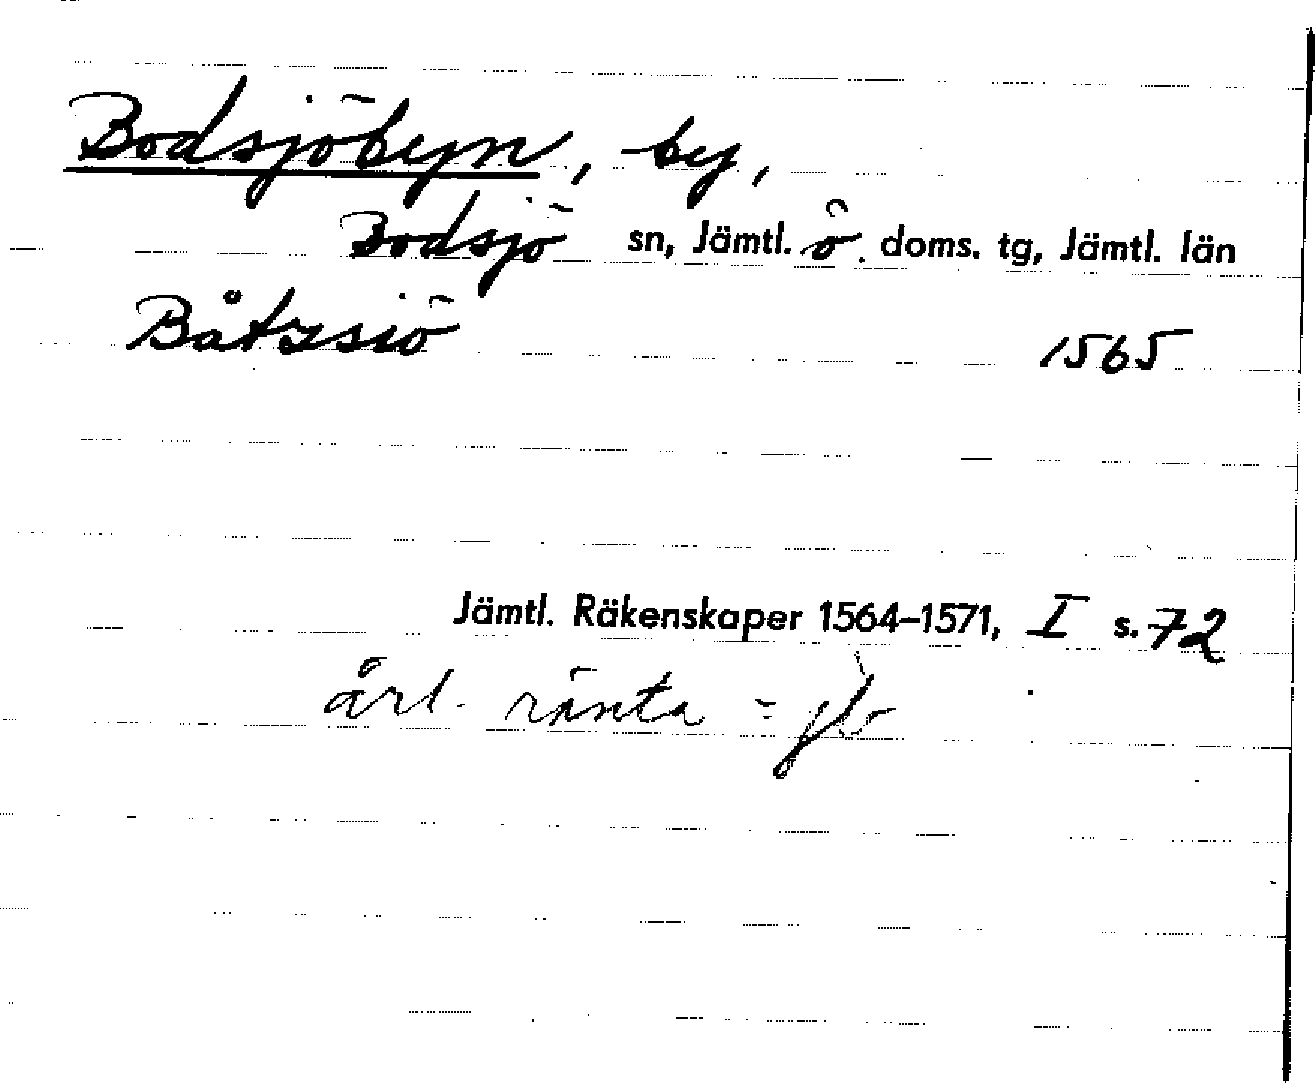 Bodsjöbyn, by,
Bodsjö sn, Jämtl. ö. doms. tg, Jämtl. län
Båtzsiö 1565
Jämtl. Räkenskaper 1564–1571, I s. 72
årl. ränta = jb